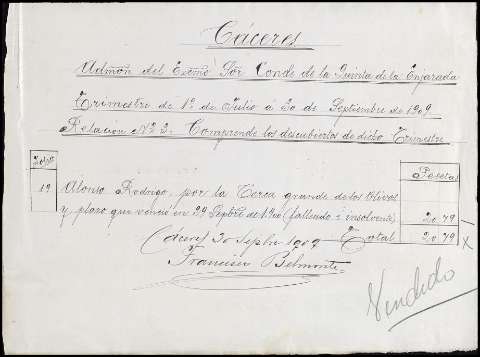 Cáceres
Admón del Excmo Sor Conde de la Quinta de la Enjarada
Trimestre de 1º de Julio á 30 de Septiembre de 1909
Relacion Nº 2. Comprende los descubiertos de dicho Trimestre
Pesetas
12 Alonso Rodrigo, por la Cerca grande de los Olivos
y plazo que vencio en 29 Septbre de 1900 (fallecido é insolvente) 20 79
Cáceres 30 Sepbre 1909 Total 20 79
Francisco Belmonte
Vendido